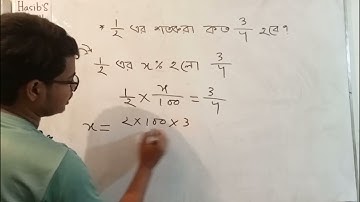 Hasib's
* 1/2 এর শতকরা কত 3/4 হবে?
1/2 এর x% হলো 3/4
1/2 × x/100 = 3/4
x = 2×100×3